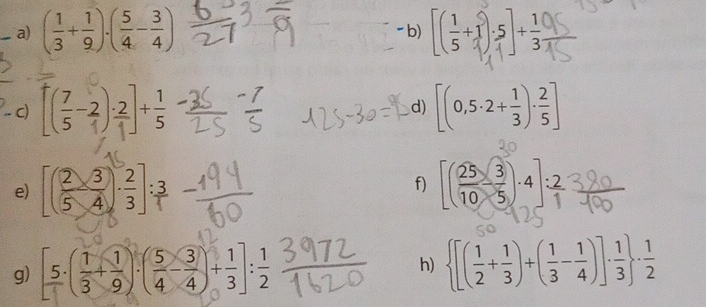 a) (1/3 + 1/9) · (5/4 − 3/4) 6/27 3 /9
b) [(1/5 + 1) · 5] + 1/3 95/15
c) [(7/5 − 2) · 2] + 1/5 −35/25 −7/5 125−30=95
d) [(0,5 · 2 + 1/3) · 2/5]
e) [(2/5 3/4) · 2/3] : 3 −194/60
f) [(25/10 3/5) · 4] : 2 380/100
g) [5 · (1/3 + 1/9) · (5/4 − 3/4) + 1/3] : 1/2 3972/1620
h) {[(1/2 + 1/3) + (1/3 − 1/4)] · 1/3} · 1/2